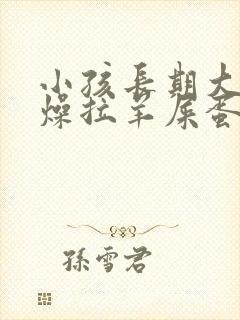 小孩長期大
燥拉羊屎蛋
孫雪君